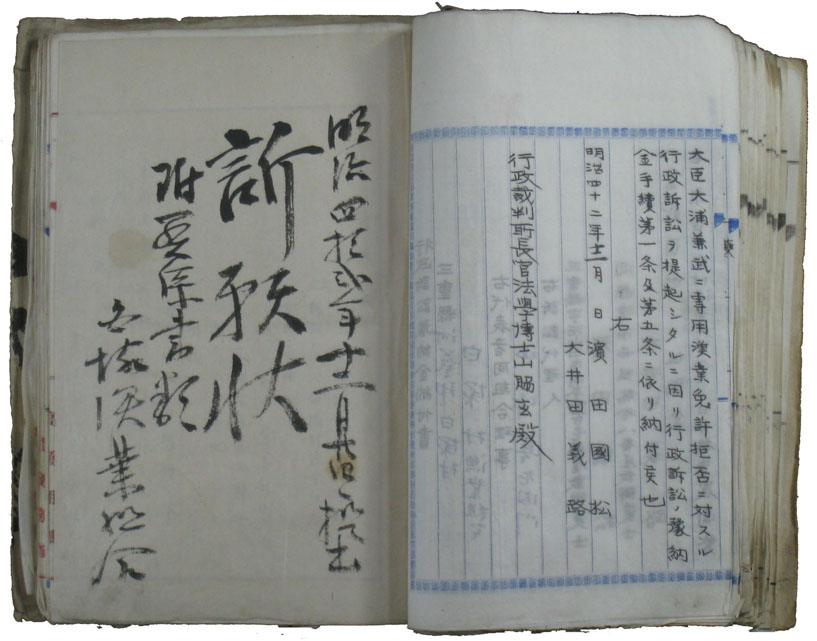 大臣大浦兼武ニ専用漁業免許拒否ニ対スル
行政訴訟ヲ提起シタルニ因リ行政訴訟ノ豫納
金手續第一条及第五条ニ依リ納付候也
右
明治四十二年十二月 日 濱田國松
大井田義路
行政裁判所長官法學博士山脇玄殿
明治四拾弐年十二月
訴願状
附要係書類
白塚漁業組合